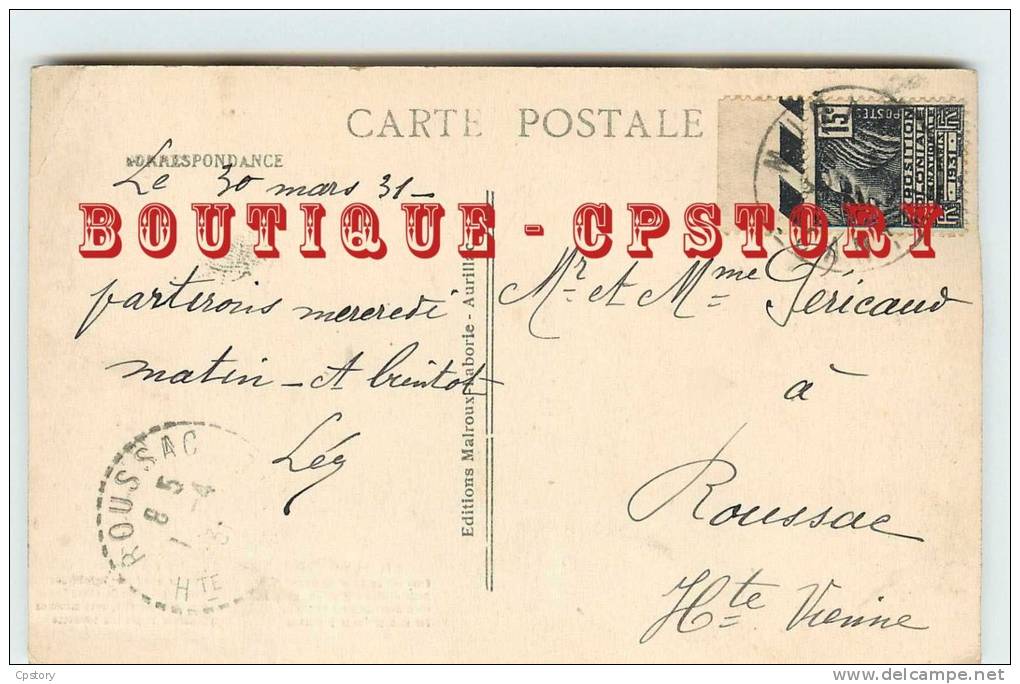 CARTE POSTALE
CORRESPONDANCE
Le 30 mars 31
BOUTIQUE - CPSTORY
partirons mercredi
matin - A bientot
Editions Malroux - Laborie - Aurillac
Mr et Mme Péricaud
à
Roussac
Hte Vienne
ROUSSAC
8 5
1 -4
HTE
15c
POSTES
EXPOSITION
COLONIALE
INTERNATIONALE
PARIS
1931
Cpstory
delcampe.net